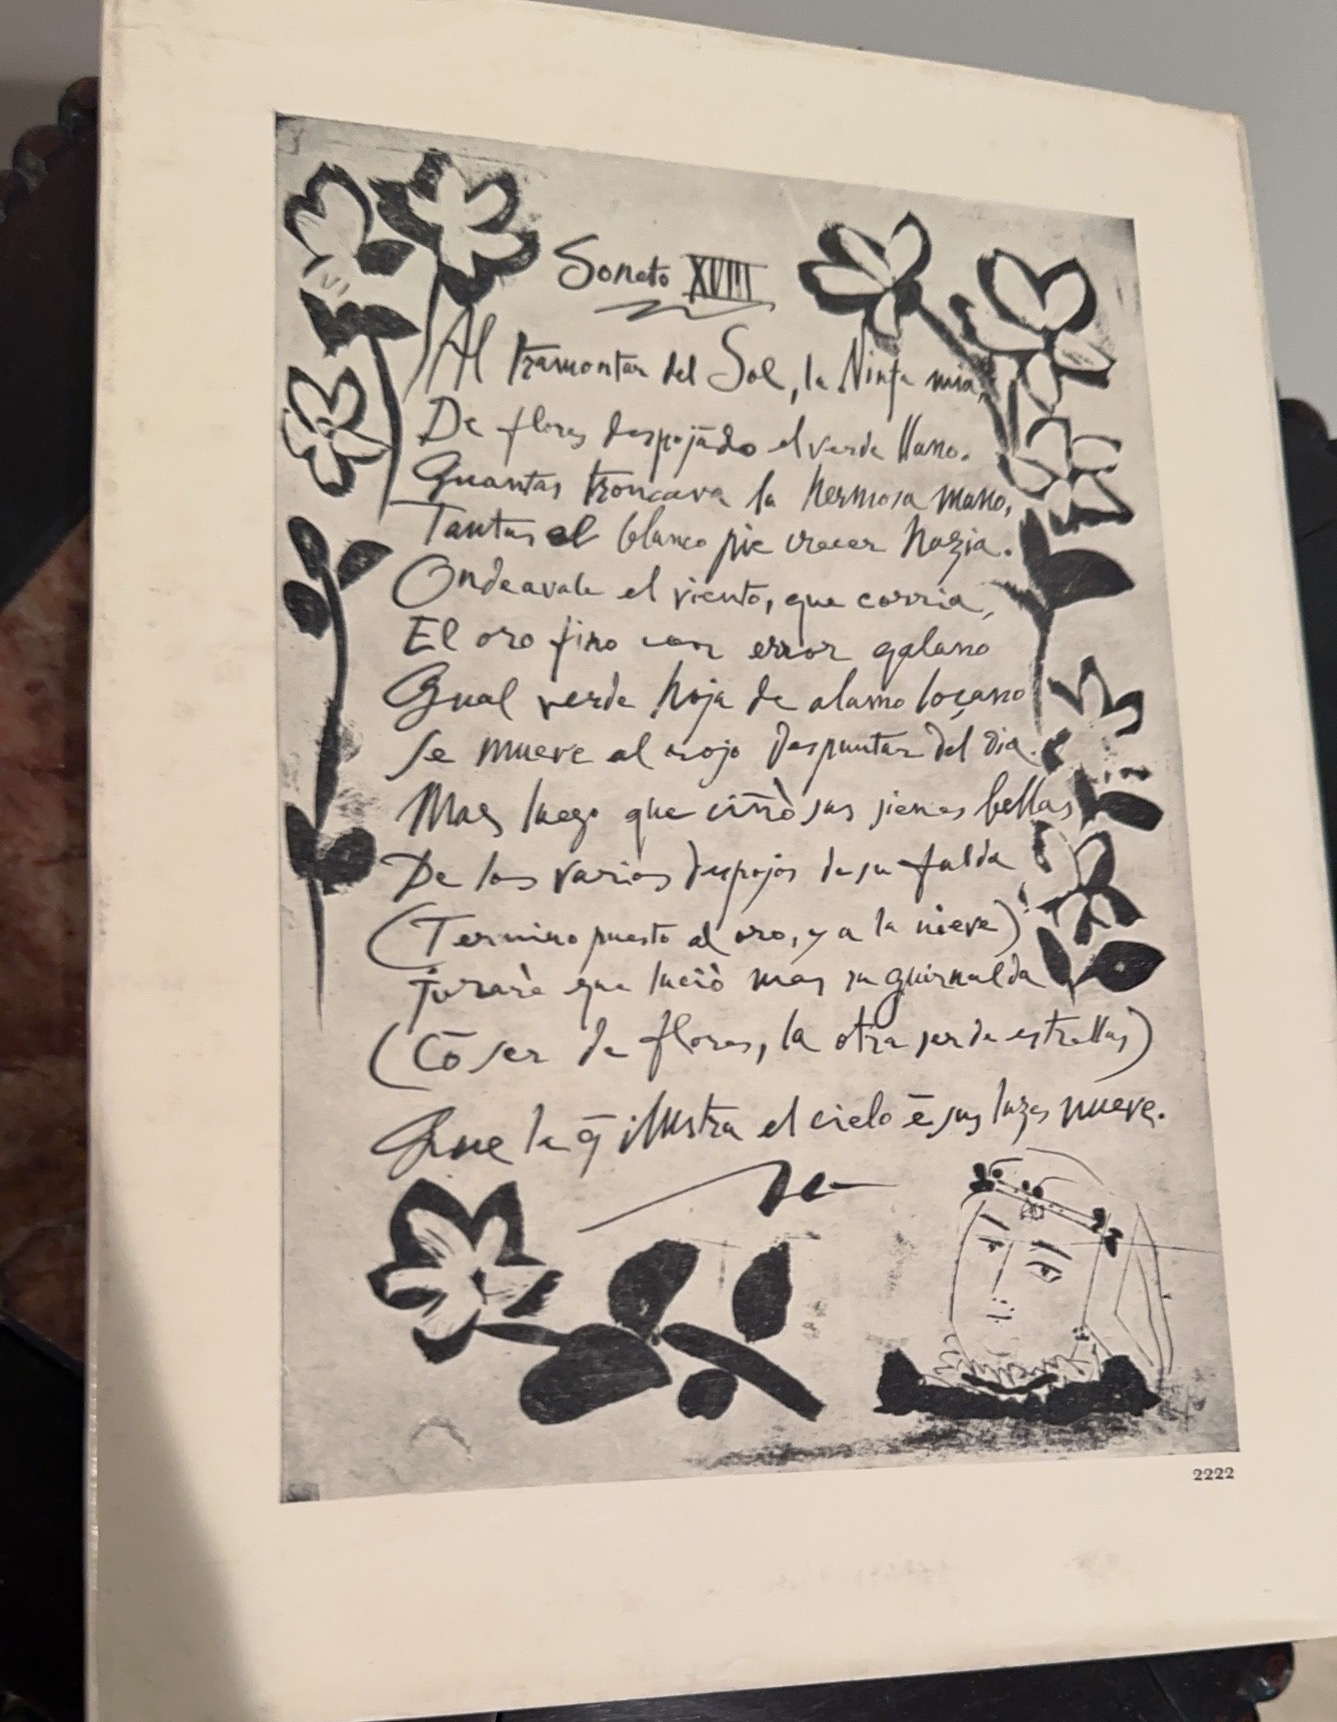 Soneto XVIII
Al tramontar del Sol, la Ninfa mia,
De flores despojādo el verde llano.
Quantas troncava la hermosa mano,
Tantas el blanco pie crecer hazia.
Ondeavale el viento, que corria,
El oro fino con error galano
Qual verde hoja de alamo loçano
Se mueve al rojo despuntar del dia.
Mas luego que ciñò sus sienes bellas
De los varios despojos de su falda
(Termino puesto al oro, y a la nieve)
Jurarè que luciò mas su guirnalda
(Cō ser de flores, la otra ser de estrellas)
Que la q̄ illustra el cielo ē sus luzes nueve.
2222